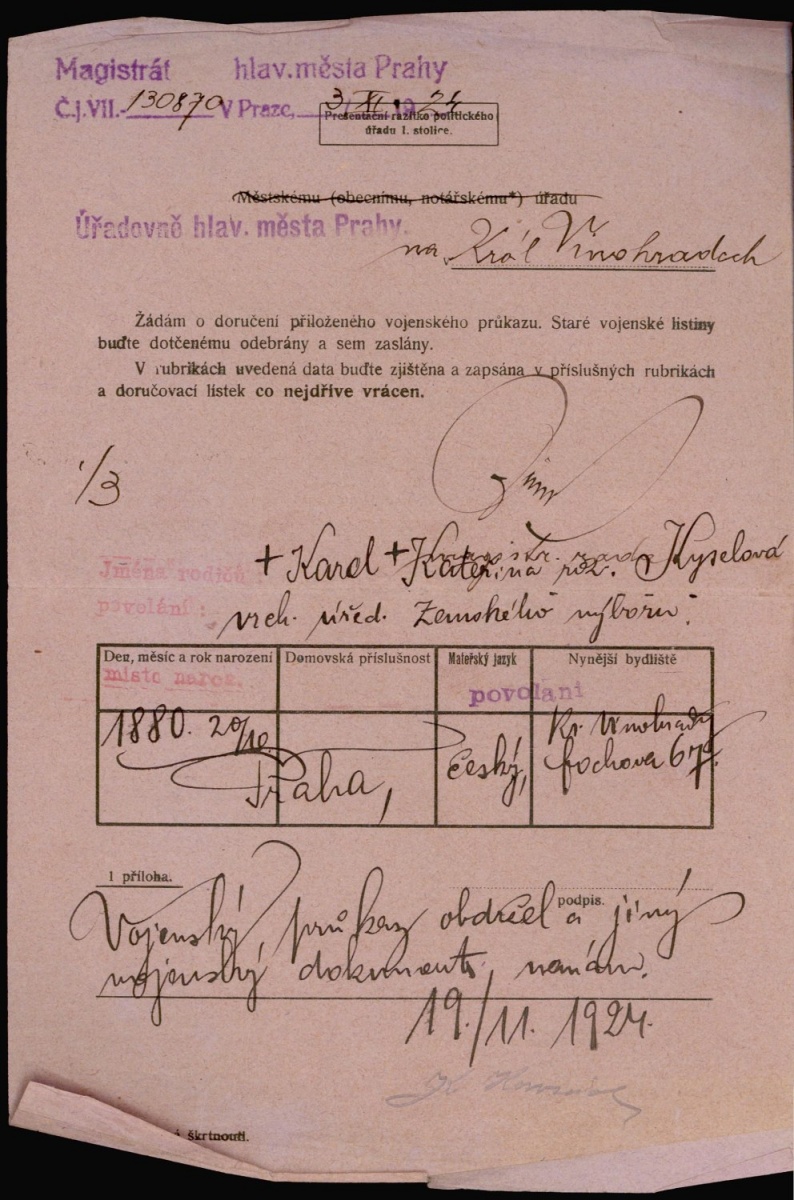 Magistrát hlav. města Prahy
Č.j. VII.-130870 V Praze, 3/XI. 1924
Presentační razítko politického
úřadu I. stolice.
Městskému (obecnímu, notářskému*) úřadu
Úřadovně hlav. města Prahy.
na Král Vinohradech
Žádám o doručení přiloženého vojenského průkazu. Staré vojenské listiny
buďte dotčenému odebrány a sem zaslány.
V rubrikách uvedená data buďte zjištěna a zapsána v příslušných rubrikách
a doručovací lístek co nejdříve vrácen.
1/3
Jména rodičů: + Karel + Kateřina roz. Kyselová
povolání: vrch. úřed. Zemského výboru.
Den, měsíc a rok narození Domovská příslušnost Mateřský jazyk Nynější bydliště
místo naroz. povolání
1880. 20/10 Praha, český, Kr. Vinohrady
Fochova 67
1 příloha.
podpis.
Vojenský průkaz obdržel a jiný
vojenský dokument, nemám.
19./11. 1924.
škrtnouti.